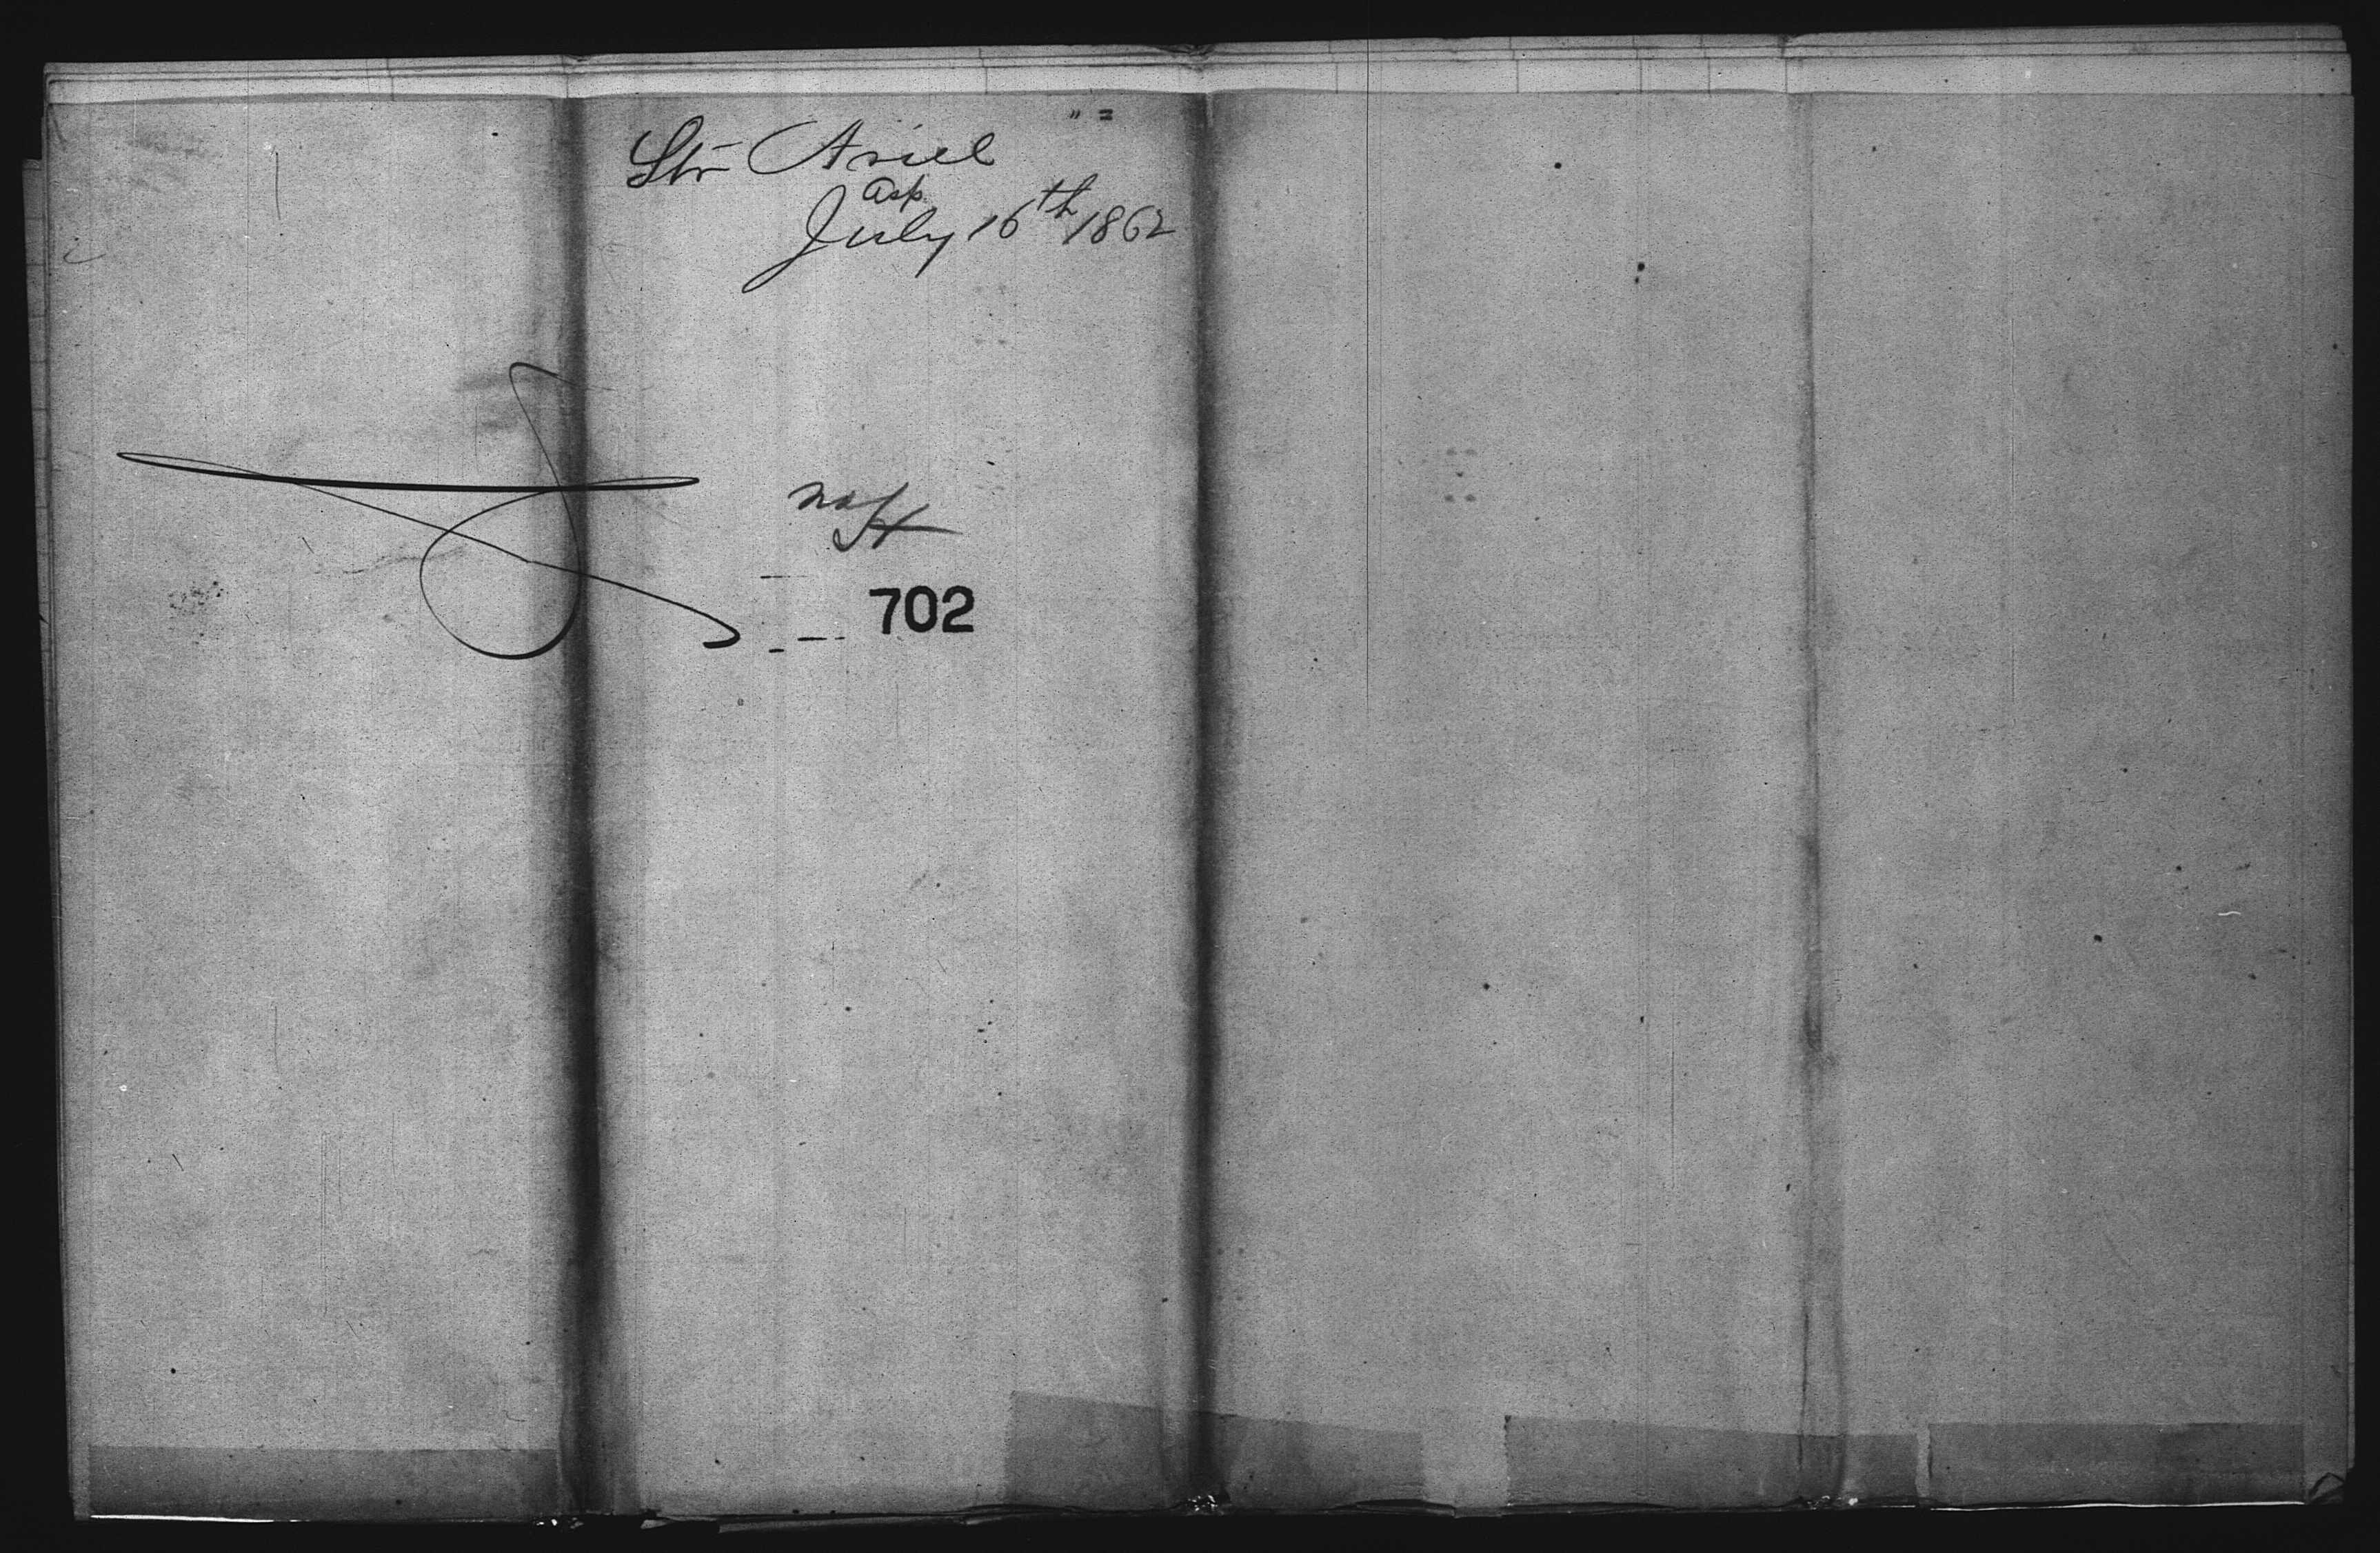 Str Ariel
Asp.
July 16th 1862
702